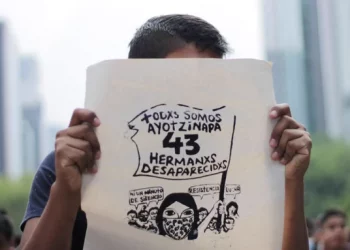 TODXS SOMOS
AYOTZINAPA
43
HERMANXS
DESAPARECIDXS
NI UN MINUTO
DE SILENCIO
RESISTENCIA